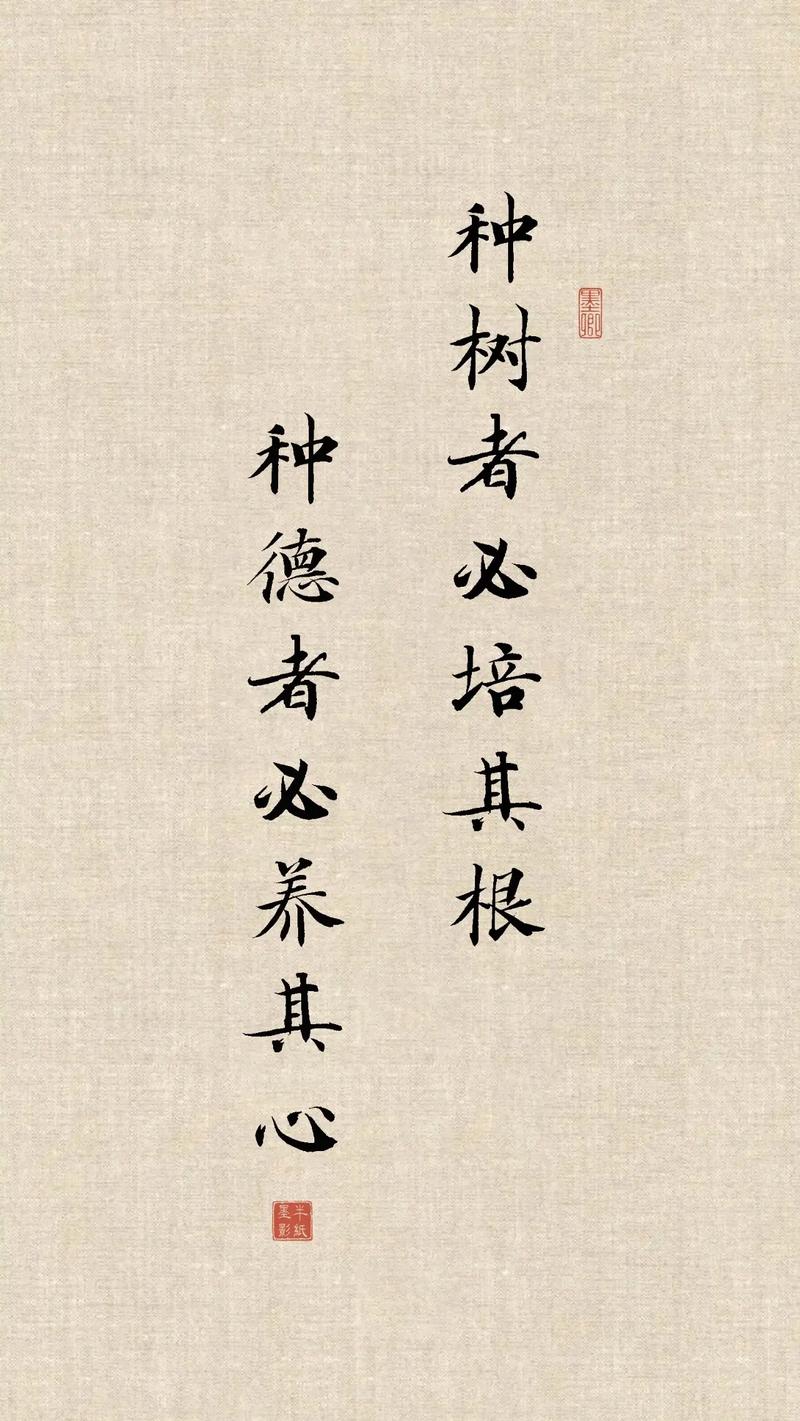 种树者必培其根
种德者必养其心
墨卿
半纸
墨影